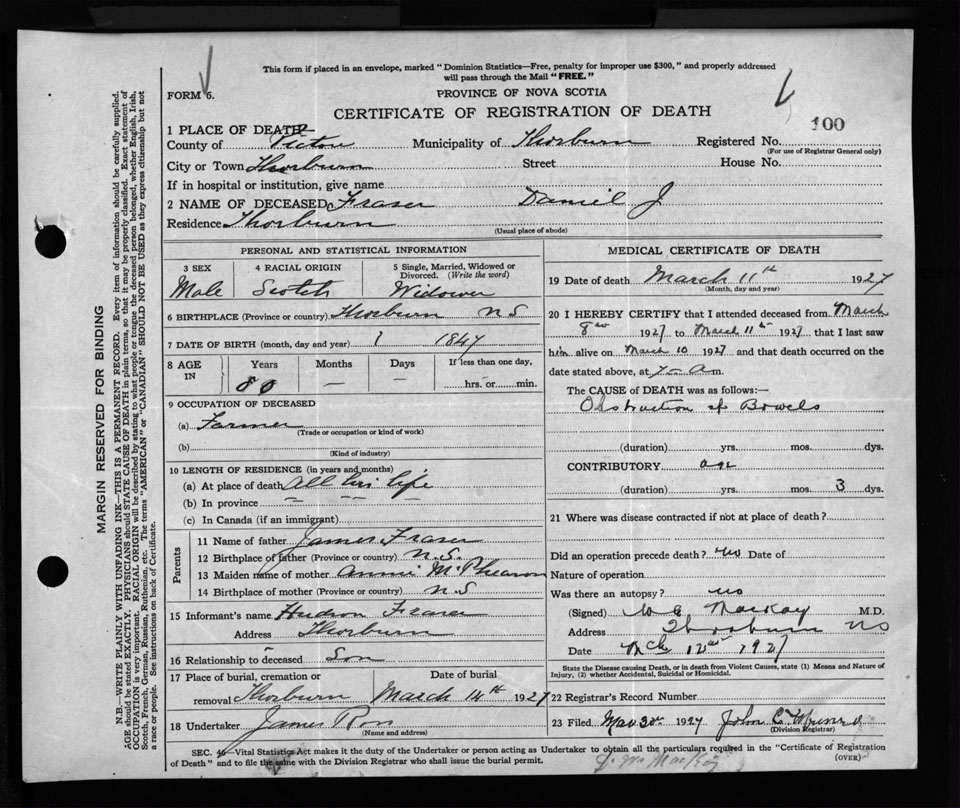 This form if placed in an envelope, marked "Dominion Statistics—Free, penalty for improper use $300," and properly addressed
will pass through the Mail "FREE."
FORM 6.
PROVINCE OF NOVA SCOTIA
CERTIFICATE OF REGISTRATION OF DEATH
100
1 PLACE OF DEATH—
County of Pictou Municipality of Thorburn Registered No.
(For use of Registrar General only)
City or Town Thorburn Street House No.
If in hospital or institution, give name
2 NAME OF DECEASED Fraser Daniel J
Residence Thorburn
(Usual place of abode)
MARGIN RESERVED FOR BINDING
N.B.—WRITE PLAINLY WITH UNFADING INK—THIS IS A PERMANENT RECORD. Every item of information should be carefully supplied.
AGE should be stated EXACTLY. PHYSICIANS should STATE CAUSE OF DEATH in plain terms, so that it may be properly classified. Exact statement of
OCCUPATION is very important. RACIAL ORIGIN will be described by stating to what people or tongue the deceased person belonged, whether English, Irish,
Scotch, French, German, Russian, Ruthenian, etc. The terms "AMERICAN" or "CANADIAN" SHOULD NOT BE USED as they express citizenship but not
a race or people. See instructions on back of Certificate.
PERSONAL AND STATISTICAL INFORMATION
3 SEX
Male
4 RACIAL ORIGIN
Scotch
5 Single, Married, Widowed or
Divorced. (Write the word)
Widower
6 BIRTHPLACE (Province or country) Thorburn N S
7 DATE OF BIRTH (month, day and year) 1847
8 AGE
IN
Years
80
Months
—
Days
—
If less than one day,
hrs. or min.
9 OCCUPATION OF DECEASED
(a) Farmer
(Trade or occupation or kind of work)
(b)
(Kind of industry)
10 LENGTH OF RESIDENCE (in years and months)
(a) At place of death All his life
(b) In province — — —
(c) In Canada (if an immigrant)
Parents
11 Name of father James Fraser
12 Birthplace of father (Province or country) N.S.
13 Maiden name of mother Annie McPhearson
14 Birthplace of mother (Province or country) N S
15 Informant's name Hudson Fraser
Address Thorburn
16 Relationship to deceased Son
17 Place of burial, cremation or
removal Thorburn
Date of burial
March 14th 1927
18 Undertaker James Ross
(Name and address)
MEDICAL CERTIFICATE OF DEATH
19 Date of death March 11th 1927
(Month, day and year)
20 I HEREBY CERTIFY that I attended deceased from March
8 1927 to March 11 1927 that I last saw
him alive on March 10 1927 and that death occurred on the
date stated above, at 7 — a m.
The CAUSE of DEATH was as follows:—
Obstruction of Bowels
(duration) yrs. mos. dys.
CONTRIBUTORY age
(duration) yrs. mos. 3 dys.
21 Where was disease contracted if not at place of death?
Did an operation precede death? no Date of
Nature of operation
Was there an autopsy? no
(Signed) MacKay M.D.
Address Thorburn NS
Date Mch 12 1927
State the Disease causing Death, or in death from Violent Causes, state (1) Means and Nature of
Injury, (2) whether Accidental, Suicidal or Homicidal.
22 Registrar's Record Number
23 Filed 1927 John C
(Division Registrar)
SEC. 46—Vital Statistics Act makes it the duty of the Undertaker or person acting as Undertaker to obtain all the particulars required in the "Certificate of Registration
of Death" and to file the same with the Division Registrar who shall issue the burial permit.
(OVER)
MacKay